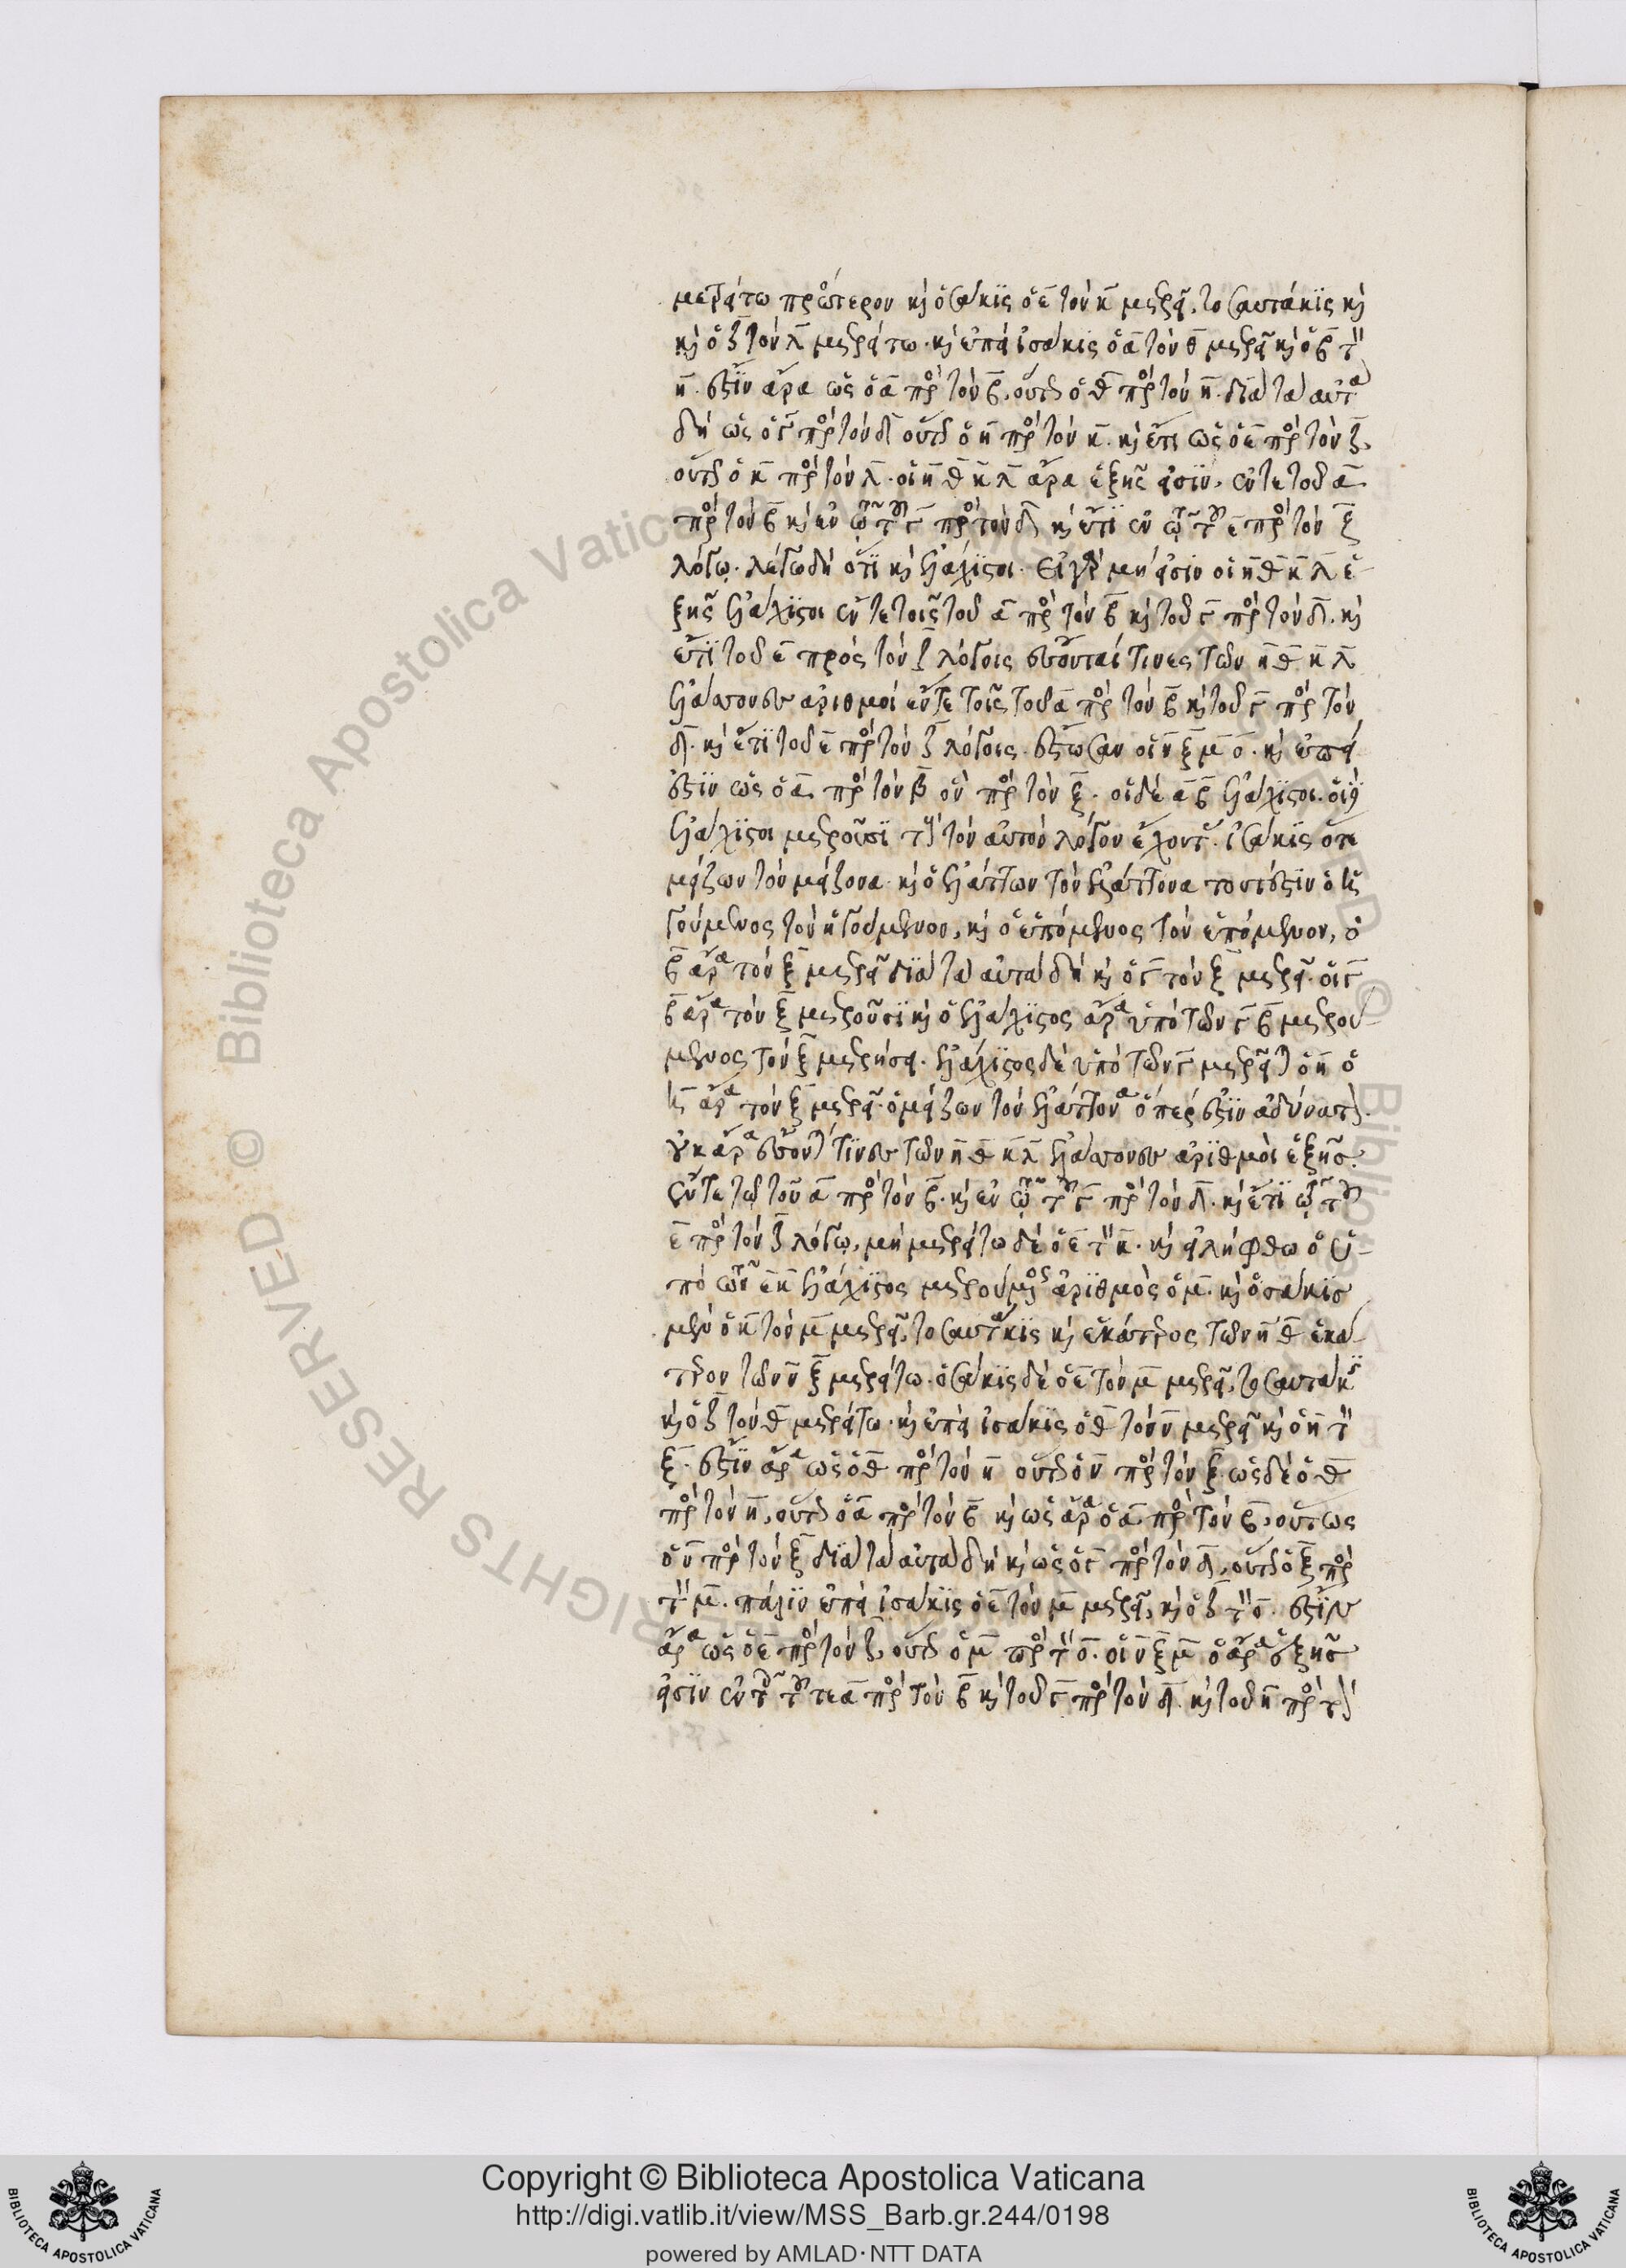 μετρείτω πρότερον κὶ ὁσάκις ὁ ε̅ τὸν κ̅ μετρεῖ, τοσαυτάκις κὶ
κὶ ὁ ζ̅ τὸν λ̅ μετρείτω. κὶ ἐπεὶ ἰσάκις ὁ α̅ τὸν θ̅ μετρεῖ κὶ ὁ β̅ τὸν
η̅. ἔστιν ἄρα ὡς ὁ α̅ πρὸς τὸν β̅, οὕτως ὁ θ̅ πρὸς τὸν η̅. διὰ τὰ αὐτὰ
δὴ ὡς ὁ γ̅ πρὸς τὸν δ̅ οὕτως ὁ η̅ πρὸς τὸν κ̅. κὶ ἔτι ὡς ὁ ε̅ πρὸς τὸν ζ̅,
οὕτως ὁ κ̅ πρὸς τὸν λ̅. οἱ η̅ θ̅ κ̅ λ̅ ἄρα ἑξῆς εἰσιν, ἐν τε τοῦ α̅
πρὸς τὸν β̅ κὶ ἐν τῷ τοῦ γ̅ πρὸς τὸν δ̅ κὶ ἔτι ἐν τῷ τοῦ ε̅ πρὸς τὸν ξ̅
λόγῳ. λέγω δὴ ὅτι κὶ ἐλάχιστοι. εἰ γὰρ μή εἰσιν οἱ η̅ θ̅ κ̅ λ̅ ἑ-
ξῆς ἐλάχιστοι ἐν τε τοῖς τοῦ α̅ πρὸς τὸν β̅ κὶ τοῦ γ̅ πρὸς τὸν δ̅. κὶ
ἔτι τοῦ ε̅ πρὸς τὸν ζ̅ λόγοις ἔσονταί τινες τῶν η̅ θ̅ κ̅ λ̅
ἐλάσσονες ἀριθμοὶ ἔν τε τοῖς τοῦ α̅ πρὸς τὸν β̅ κὶ τοῦ γ̅ πρὸς τὸν
δ̅. κὶ ἔτι τοῦ ε̅ πρὸς τὸν ζ̅ λόγοις. ἔστωσαν οἱ ν̅ ξ̅ μ̅ ο̅. κὶ ἐπεί
ἐστιν ὡς ὁ α̅ πρὸς τὸν β̅ ὁ ν̅ πρὸς τὸν ξ̅. οἱ δὲ α̅ β̅ ἐλάχιστοι. οἱ δὲ
ἐλάχιστοι μετροῦσι τοὺς τὸν αὐτὸν λόγον ἔχοντας ἰσάκις ὅτε
μείζων τὸν μείζονα κὶ ὁ ἐλάττων τὸν ἐλάττονα τουτέστιν ὁ ἡ-
γούμενος τὸν ἡγούμενον, κὶ ὁ ἑπόμενος τὸν ἑπόμενον, ὁ
β̅ ἄρα τὸν ξ̅ μετρεῖ διὰ τὰ αὐτὰ δὴ κὶ ὁ γ̅ τὸν ξ̅ μετρεῖ. οἱ γ̅
β̅ ἄρα τὸν ξ̅ μετροῦσι κὶ ὁ ἐλάχιστος ἄρα ὑπὸ τῶν γ̅ β̅ μετρού-
μενος τὸν ξ̅ μετρήσει. ἐλάχιστος δὲ ὑπὸ τῶν γ̅ μετρεῖται ὁ η̅ ὁ
η̅ ἄρα τὸν ξ̅ μετρεῖ. ὁ μείζων τὸν ἐλάττονα ὅπερ ἐστὶν ἀδύνατον.
οὐκ ἄρα ἔσονται τινες τῶν η̅ θ̅ κ̅ λ̅ ἐλάσσονες ἀριθμοὶ ἑξῆς
ἔν τε τῷ τοῦ α̅ πρὸς τὸν β̅. κὶ ἐν τῷ τοῦ γ̅ πρὸς τὸν δ̅. κὶ ἔτι τῷ τοῦ
ε̅ πρὸς τὸν ζ̅ λόγῳ, μὴ μετρείτω δὲ ὁ ε̅ τὸν κ̅. κὶ εἰλήφθω ὁ ὑ-
πὸ τῶν ε̅ κ̅ ἐλάχιστος μετρούμενος ἀριθμὸς ὁ μ̅. κὶ ὁσάκις
μὲν ὁ κ̅ τὸν μ̅ μετρεῖ, τοσαυτάκις κὶ ἑκάτερος τῶν η̅ θ̅ ἑκά-
τερον τῶν ν̅ ξ̅ μετρείτω. ὁσάκις δὲ ὁ ε̅ τὸν μ̅ μετρεῖ, τοσαυτάκις
κὶ ὁ ζ̅ τὸν θ̅ μετρείτω. κὶ ἐπεὶ ἰσάκις ὁ θ̅ τὸν ν̅ μετρεῖ κὶ ὁ η̅ τὸν
ξ̅. ἔστιν ἄρα ὡς ὁ θ̅ πρὸς τὸν η̅ οὕτως ὁ ν̅ πρὸς τὸν ξ̅ ὡς δὲ ὁ θ̅
πρὸς τὸν η̅, οὕτως ὁ α̅ πρὸς τὸν β̅ κὶ ὡς ἄρα ὁ α̅ πρὸς τὸν β̅, οὕτως
ὁ ν̅ πρὸς τὸν ξ̅ διὰ τὰ αὐτὰ δὴ κὶ ὡς ὁ γ̅ πρὸς τὸν δ̅, οὕτως ὁ ξ̅ πρὸς
τὸν μ̅. πάλιν ἐπεὶ ἰσάκις ὁ ε̅ τὸν μ̅ μετρεῖ, κὶ ὁ ζ̅ τὸν ο̅. ἔστιν
ἄρα ὡς ὁ ε̅ πρὸς τὸν ζ̅, οὕτως ὁ μ̅ πρὸς τὸν ο̅. οἱ ν̅ ξ̅ μ̅ ο̅ ἄρα ἑξῆς
εἰσιν ἐν τοῖς τοῦ τε α̅ πρὸς τὸν β̅ κὶ τοῦ γ̅ πρὸς τὸν δ̅. κὶ τοῦ η̅ πρὸς τὸν
Copyright © Biblioteca Apostolica Vaticana
http://digi.vatlib.it/view/MSS_Barb.gr.244/0198
powered by AMLAD·NTT DATA